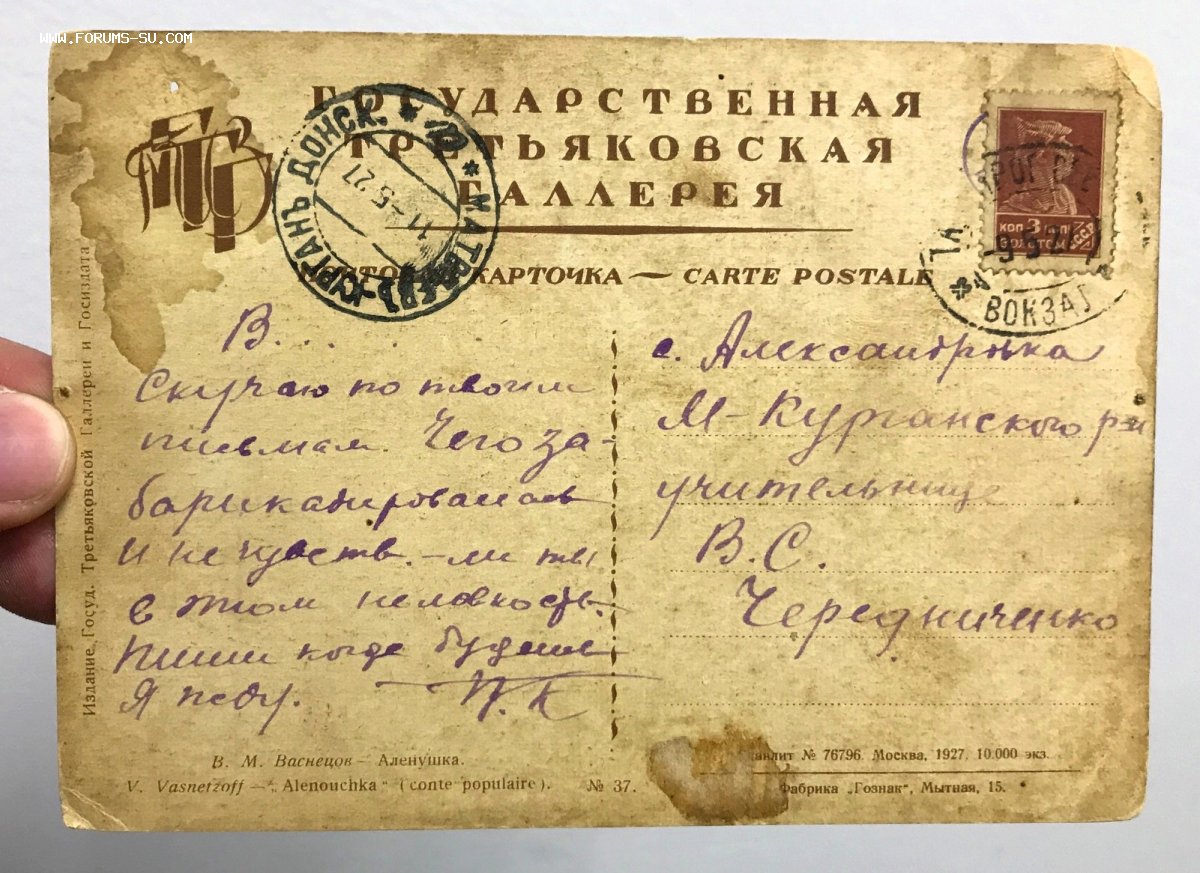 WWW.FORUMS-SU.COM
ГОСУДАРСТВЕННАЯ
ТРЕТЬЯКОВСКАЯ
ГАЛЛЕРЕЯ
КАРТОЧКА — CARTE POSTALE
МАТВѢЕВЪ-КУРГАНЪ ДОНСК.
11-5-27
3
КОП.
ЗОЛОТОМ
СССР
9-5-27
ВОКЗАЛ
В....
Скучаю по твоим
письмам. Чего за-
барикадировалась
И не чувств.-ли ты
в этом неловкость.
Пиши когда будешь
Я жду. П.К
с. Александровка
М-Курганского р-н
учительнице
В.С.
Чередниченко
Издание Госуд. Третьяковской Галлереи и Госиздата
В. М. Васнецов - Аленушка.
V. Vasnetzoff — „Alenouchka" (conte populaire). № 37.
№ 76796. Москва, 1927. 10.000 экз.
Фабрика „Гознак", Мытная, 15.